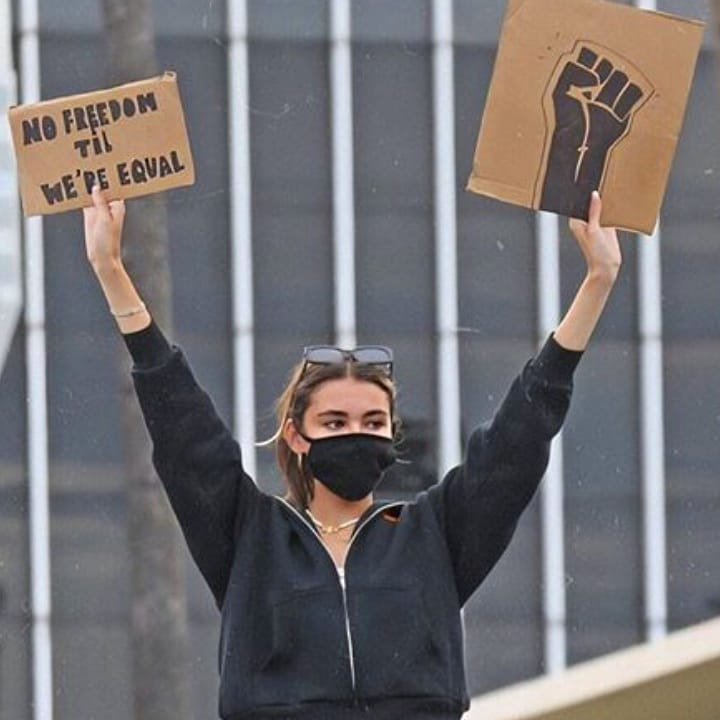 NO FREEDOM
TIL
WE'RE EQUAL